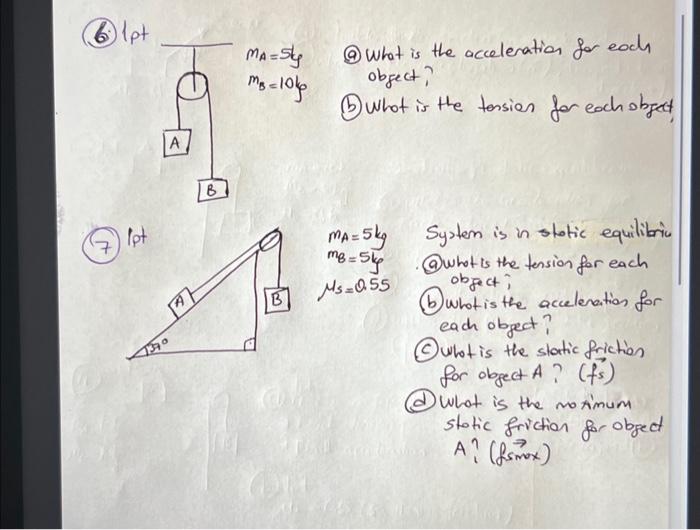 6 1pt
mA = 5kg
mB = 10kg
A
B
a What is the acceleration for each
object?
b What is the tension for each object
7 1pt
mA = 5kg
mB = 5kg
μs = 0.55
A
B
37°
System is in static equilibriu
a what is the tension for each
object;
b what is the acceleration for
each object?
c what is the static friction
for object A? (fs)
d What is the maximum
static friction for object
A? (fsmax)